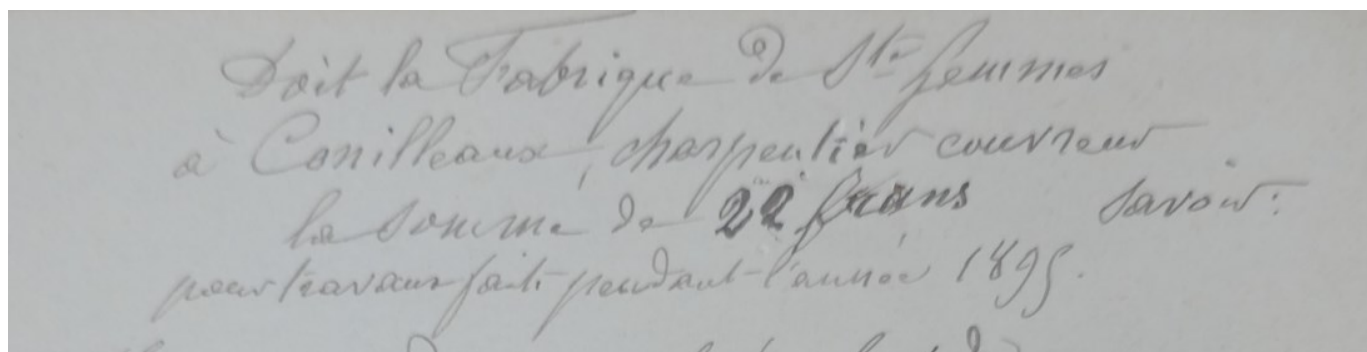 Doit la Fabrique de Ste gemmes
à Conilleaux, charpentier couvreur
la somme de 22 frans savoir:
pour travaux fait pendant l'année 1895.